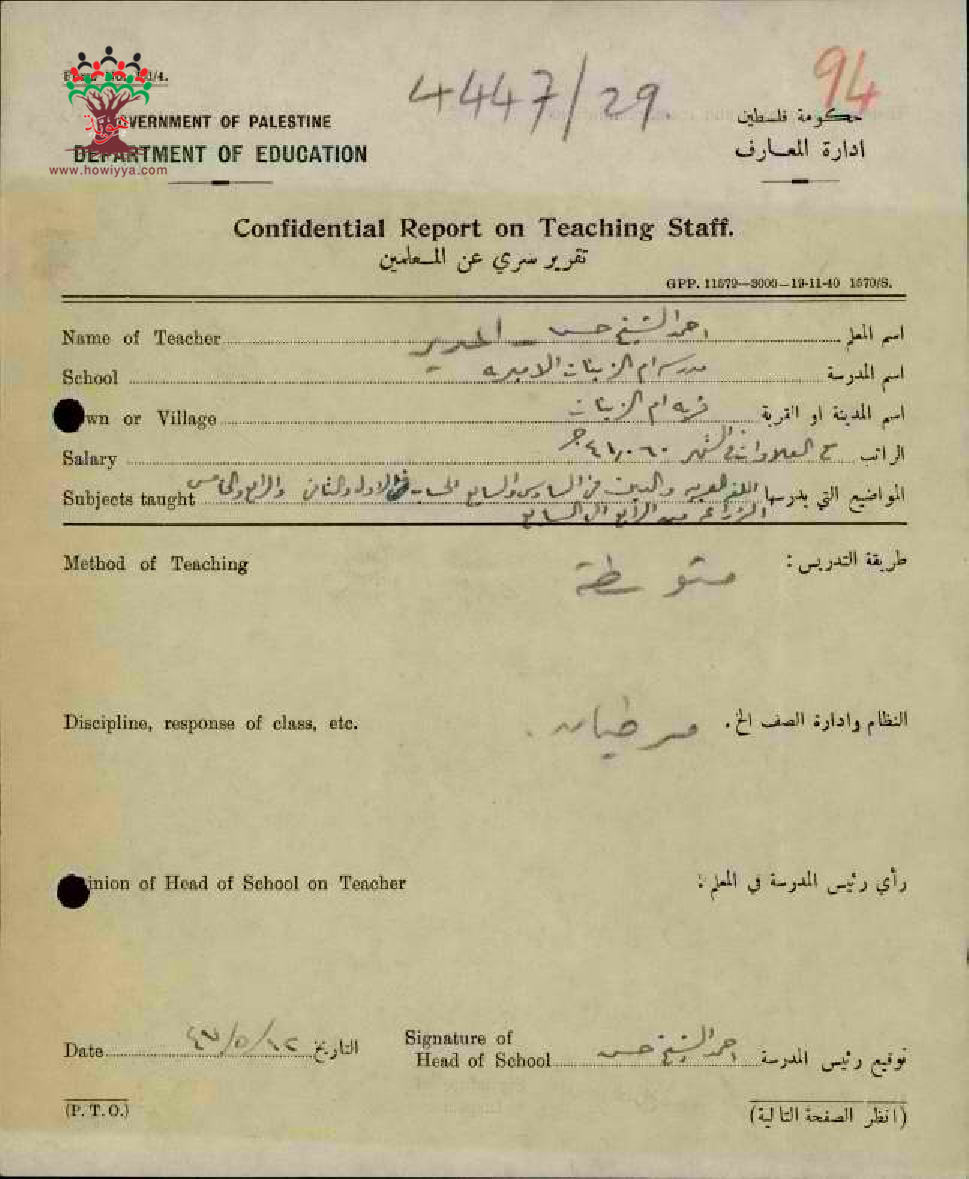 94
4447/29
Form No. 1/4.
GOVERNMENT OF PALESTINE
حكومة فلسطين
DEPARTMENT OF EDUCATION
ادارة المعارف
هوية
www.howiyya.com
Confidential Report on Teaching Staff.
تقرير سري عن المعلمين
GPP. 11579—3000—19-11-40 1570/S.
Name of Teacher احمد الشيخ حسن - المدير اسم المعلم
School مدرسة ام الزينات الاميرية اسم المدرسة
Town or Village قرية ام الزينات اسم المدينة او القرية
Salary مع العلاوات في الشهر ٤١،٠٦٠ ج الراتب
Subjects taught اللغة العربية والدين في السادس والسابع الحساب في الاول والثاني والرابع والخامس المواضيع التي يدرسها
الزراعة من الرابع الى السابع
Method of Teaching متوسطة طريقة التدريس:
Discipline, response of class, etc. مرضيان. النظام وادارة الصف الخ.
Opinion of Head of School on Teacher رأي رئيس المدرسة في المعلم:
Date ١٢/٥/٤٧ التاريخ Signature of Head of School احمد الشيخ حسن توقيع رئيس المدرسة
(P. T. O.) (انظر الصفحة التالية)